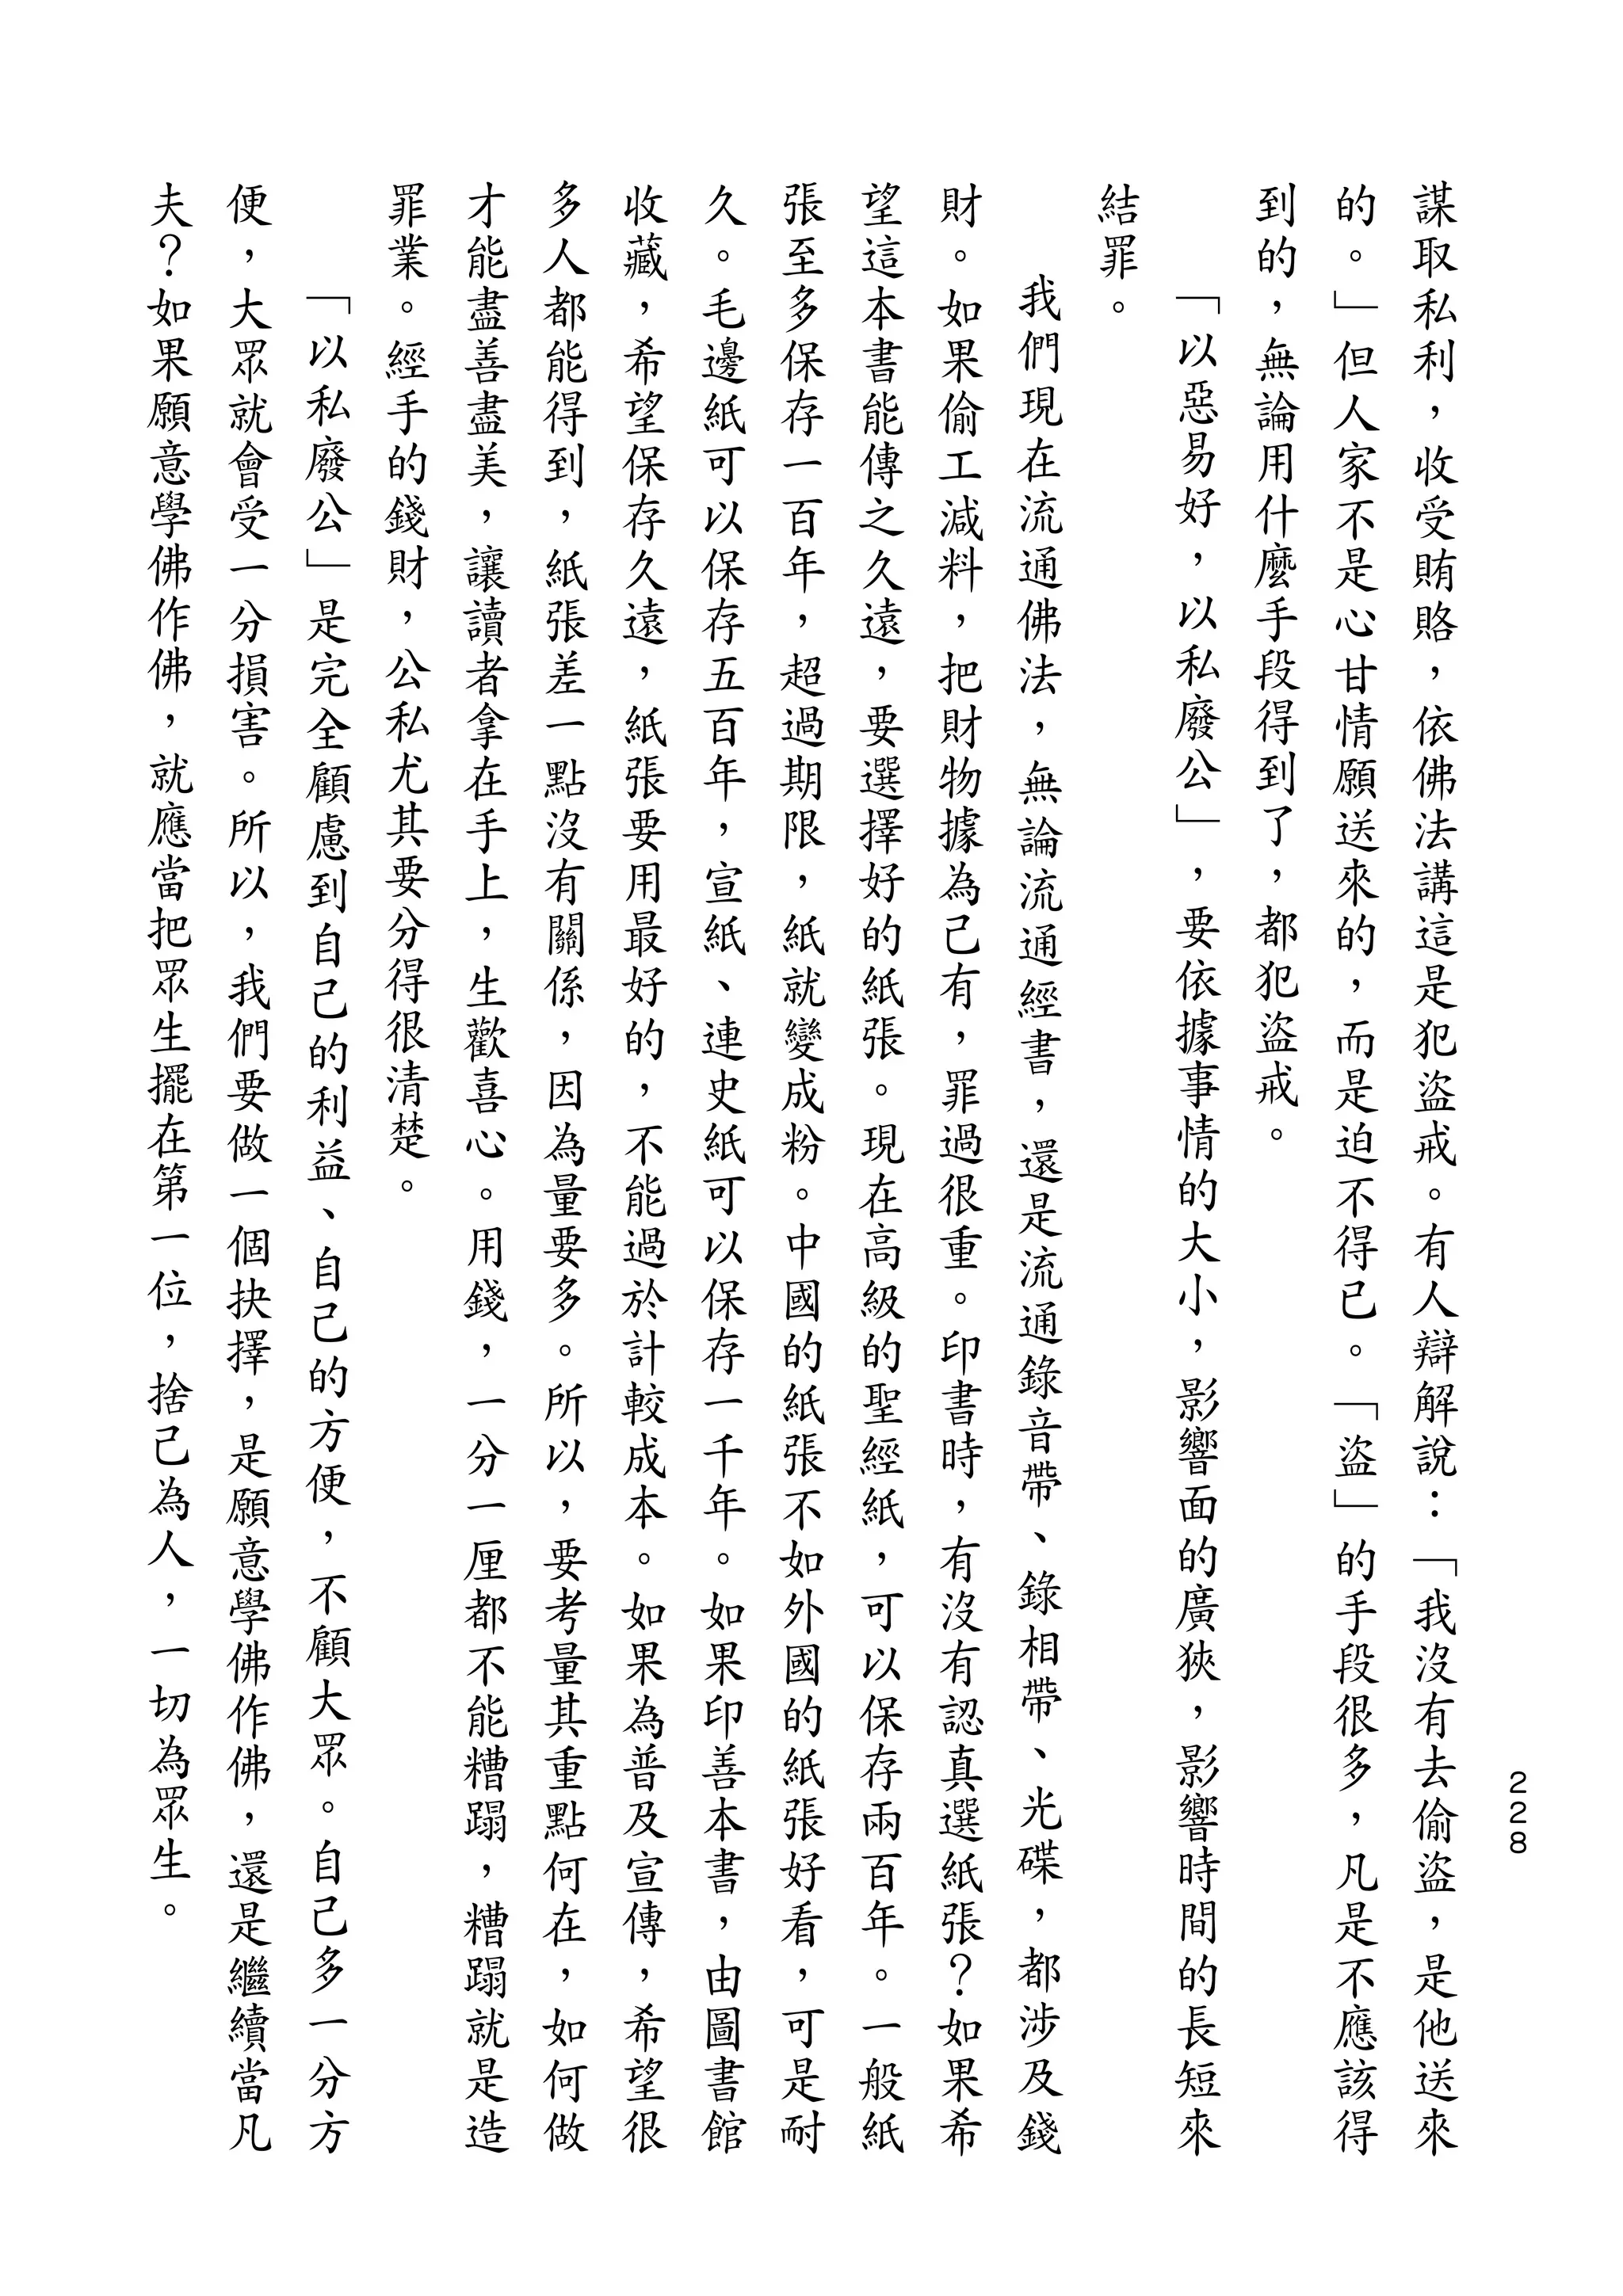 228
謀取私利，收受賄賂，依佛法講這是犯盜戒。有人辯解說：「我沒有去偷盜，是他送來
的。」但人家不是心甘情願送來的，而是迫不得已。「盜」的手段很多，凡是不應該得
到的，無論用什麼手段得到了，都犯盜戒。
「以惡易好，以私廢公」，要依據事情的大小，影響面的廣狹，影響時間的長短來
結罪。
我們現在流通佛法，無論流通經書，還是流通錄音帶、錄相帶、光碟，都涉及錢
財。如果偷工減料，把財物據為己有，罪過很重。印書時，有沒有認真選紙張？如果希
望這本書能傳之久遠，要選擇好的紙張。現在高級的聖經紙，可以保存兩百年。一般紙
張至多保存一百年，超過期限，紙就變成粉。中國的紙張不如外國的紙張好看，可是耐
久。毛邊紙可以保存五百年，宣紙、連史紙可以保存一千年。如果印善本書，由圖書館
收藏，希望保存久遠，紙張要用最好的，不能過於計較成本。如果為普及宣傳，希望很
多人都能得到，紙張差一點沒有關係，因為量要多。所以，要考量其重點何在，如何做
才能盡善盡美，讓讀者拿在手上，生歡喜心。用錢，一分一厘都不能糟蹋，糟蹋就是造
罪業。經手的錢財，公私尤其要分得很清楚。
「以私廢公」是完全顧慮到自己的利益、自己的方便，不顧大眾。自己多一分方
便，大眾就會受一分損害。所以，我們要做一個抉擇，是願意學佛作佛，還是繼續當凡
夫？如果願意學佛作佛，就應當把眾生擺在第一位，捨己為人，一切為眾生。